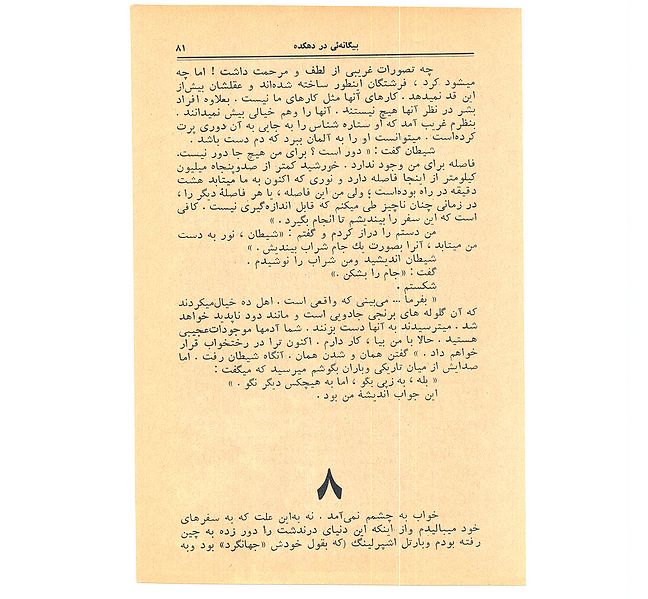 بیگانه‌ئی در دهکده ۸۱
چه تصورات غریبی از لطف و مرحمت داشت ! اما چه
میشود کرد ، فرشتگان اینطور ساخته شده‌اند و عقلشان بیش‌از
این قد نمیدهد . کارهای آنها مثل کارهای ما نیست . بعلاوه افراد
بشر در نظر آنها هیچ نیستند . آنها را وهم خیالی بیش نمیدانند .
بنظرم غریب آمد که او ستاره شناس را به جایی به آن دوری پرت
کرده‌است . میتوانست او را به آلمان ببرد که دم دست باشد .
شیطان گفت : « دور است ؟ برای من هیچ جا دور نیست.
فاصله برای من وجود ندارد . خورشید کمتر از صدوپنجاه میلیون
کیلومتر از اینجا فاصله دارد و نوری که اکنون به ما میتابد هشت
دقیقه در راه بوده‌است ؛ ولی من این فاصله ، یا هر فاصلهٔ دیگر را ،
در زمانی چنان ناچیز طی میکنم که قابل اندازه‌گیری نیست . کافی
است که این سفر را بیندیشم تا انجام بگیرد . »
من دستم را دراز کردم و گفتم : «شیطان ، نور به دست
من میتابد ، آنرا بصورت یك جام شراب بیندیش . »
شیطان اندیشید ومن شراب را نوشیدم .
گفت : «جام را بشکن .»
شکستم .
« بفرما ... می‌بینی که واقعی است . اهل ده خیال‌میکردند
که آن گلوله های برنجی جادویی است و مانند دود ناپدید خواهد
شد . میترسیدند به آنها دست بزنند . شما آدمها موجودات‌عجیبی
هستید . حالا با من بیا ، کار دارم . اکنون ترا در رختخواب قرار
خواهم داد . » گفتن همان و شدن همان . آنگاه شیطان رفت . اما
صدایش از میان تاریکی وباران بگوشم میرسید که میگفت :
« بله ، به زپی بگو ، اما به هیچکس دیگر نگو . »
این جواب اندیشهٔ من بود .
۸
خواب به چشمم نمی‌آمد . نه به‌این علت که به سفرهای
خود میبالیدم واز اینکه این دنیای درندشت را دور زده به چین
رفته بودم وبارتل اشپرلینگ (که بقول خودش «جهانگرد» بود وبه